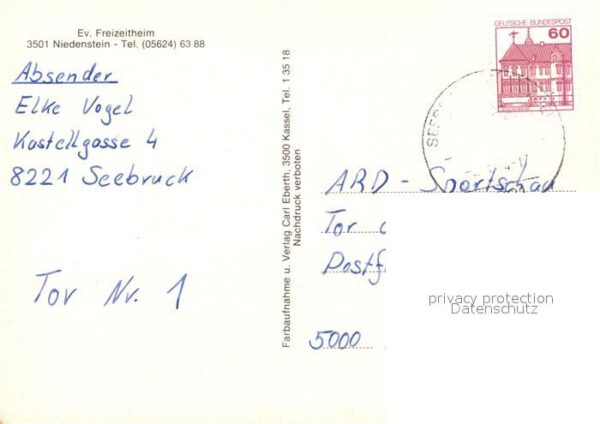 Ev. Freizeitheim
3501 Niedenstein - Tel. (05624) 63 88
Absender
Elke Vogel
Kastellgasse 4
8221 Seebruck
Tor Nr. 1
Farbaufnahme u. Verlag Carl Eberth, 3500 Kassel, Tel. 1 35 18
Nachdruck verboten
DEUTSCHE BUNDESPOST
60
ARD - Sportschau
Tor
5000
privacy protection
Datenschutz